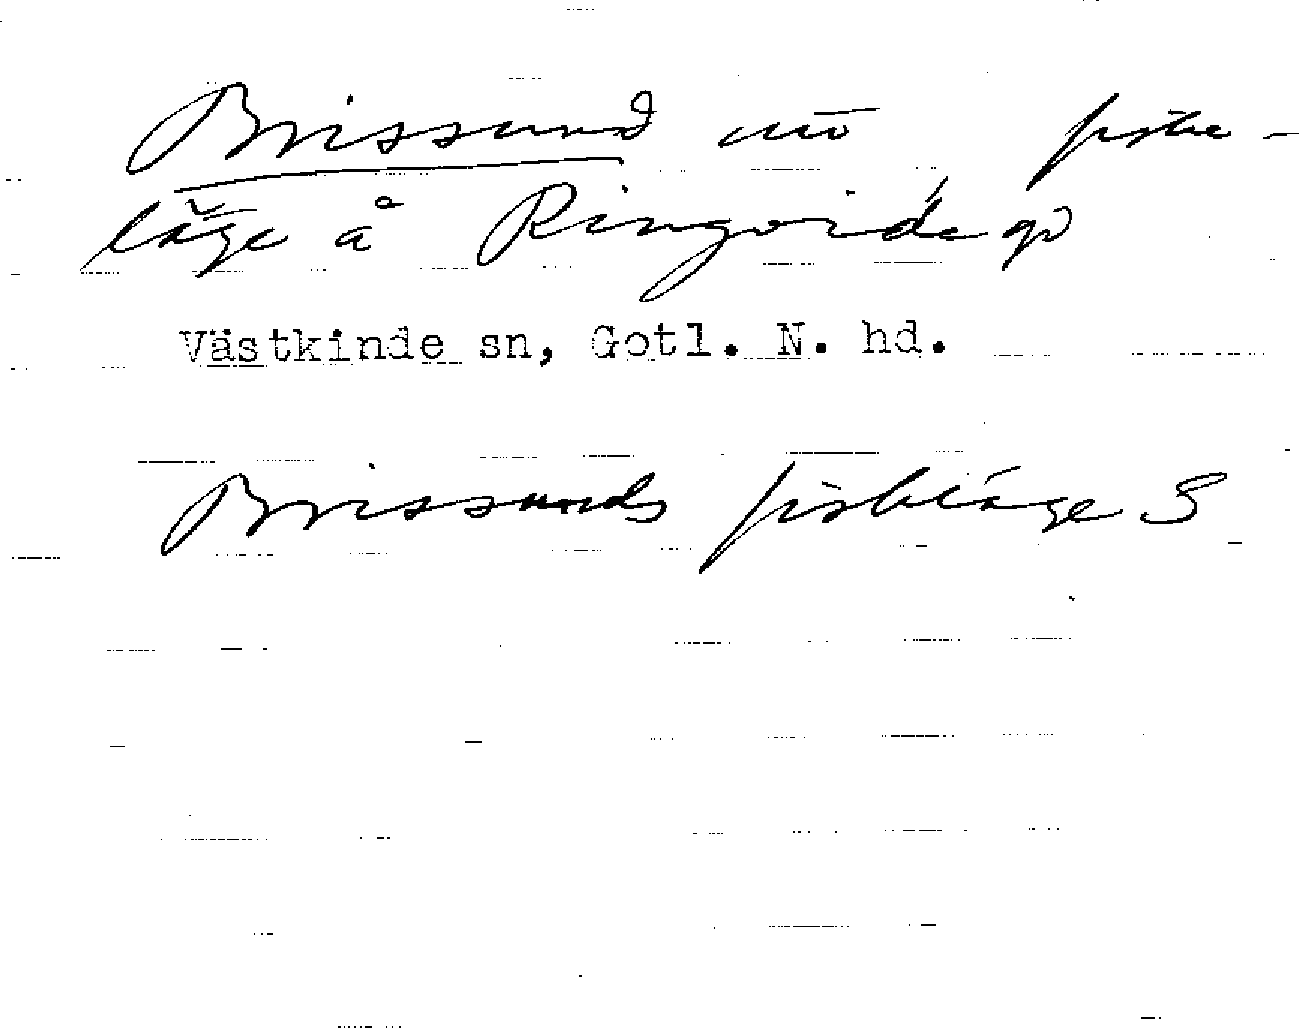 Brissund fiske-
läge å Ringvide gd
Västkinde sn, Gotl. N. hd.
Brissunds fiskläge S